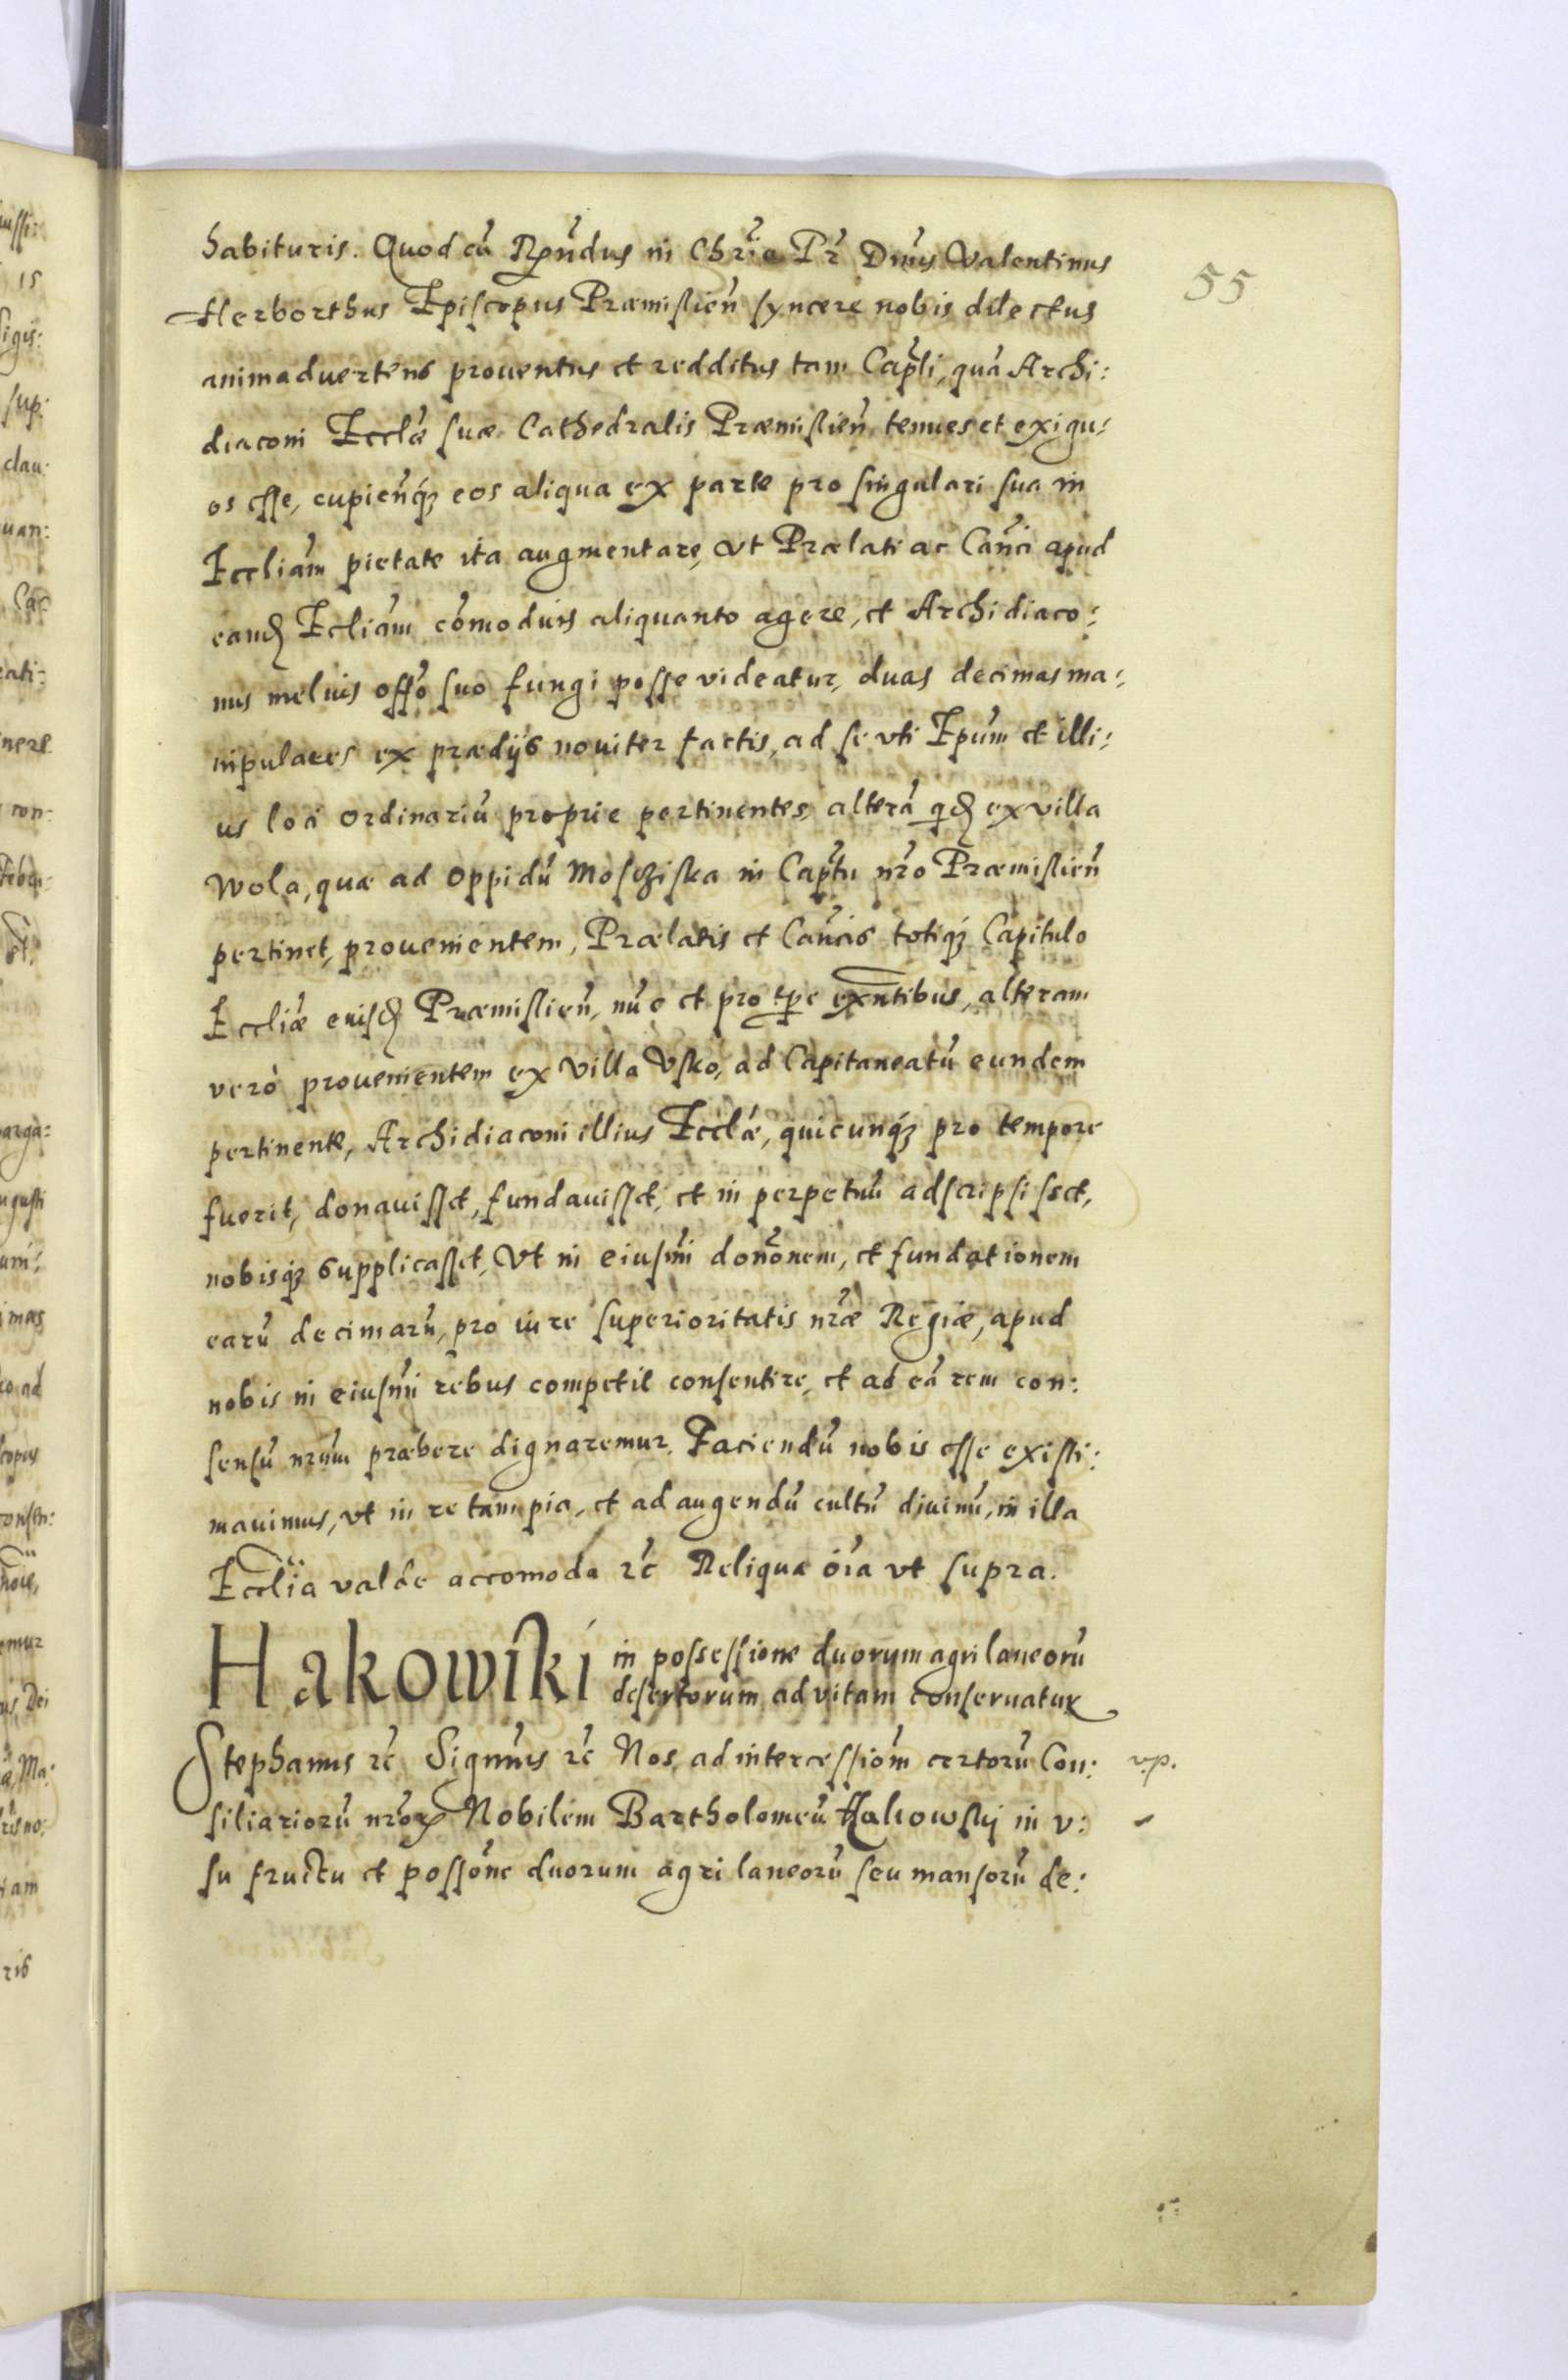 55
habituris. Quod cū Rṇdus in Chrīo Pr̄ Dnūs Valentinus
Herborthus Episcopus Præmislien̄ syncere nobis dilectus
animadvertens proventus et redditus tam Cap̄li, quā Archi:
diaconi Ecclǣ suæ Cathedralis Præmislien̄ tenues et exigu:
os esse, cupien̄q₃ eos aliqua ex parte pro singulari sua in
Eccliām pietate ita augmentare, ut Prælati ac Can̄ci apud
eand Ecliām cōmodius aliquanto agere, et Archidiaco:
nus melius offo suo fungi posse videatur, duas decimas ma:
nipulares ex prædijs noviter factis, ad se uti Epūm et illi:
us loci ordinariū proprie pertinentes, alterā qd ex villa
Wola, quæ ad oppidū Mosciziska in Cap̄tu nr̄o Præmislien̄
pertinet, provenientem, Prælatis et Can̄cis totiq₃ Capitulo
Eccliǣ eiusd Præmislien̄, nūc et pro tpe exn̄tibus, alteram
verò provenientem ex villa Usko, ad Capitaneatū eundem
pertinente, Archidiaconi illius Ecclǣ, quicunq₃ pro tempore
fuerit, donavisset, fundavisset, et in perpetuū adscripsisset,
nobisq₃ supplicasset, Ut in eiusmi donōnem, et fundationem
earū decimarū, pro iure superioritatis nrǣ Regiæ, apud
nobis in eiusmi rebus competit consentire, et ad eā rem con:
sensū nrūm præbere dignaremur. Faciendū nobis esse existi:
mavimus, ut in re tam pia, et ad augendū cultū divinū, in illa
Ecclīa valde accomoda rc̄ Reliqua ōia ut supra.
Hakowski in possessione duorum agri laneorū
desertorum ad vitam conservatur
Stephanus rc̄ Signmūs rc̄ Nos, ad intercessiōm certorū Con: v.p.
siliariorū nrōrꝝ Nobilem Bartholomeū Hakowskij in v:
su fructu et possōne duorum agri laneorū seu mansorū de: